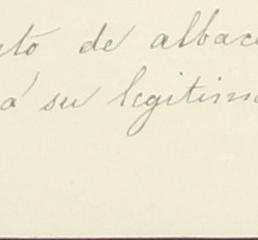 cto de albace
á su legitima